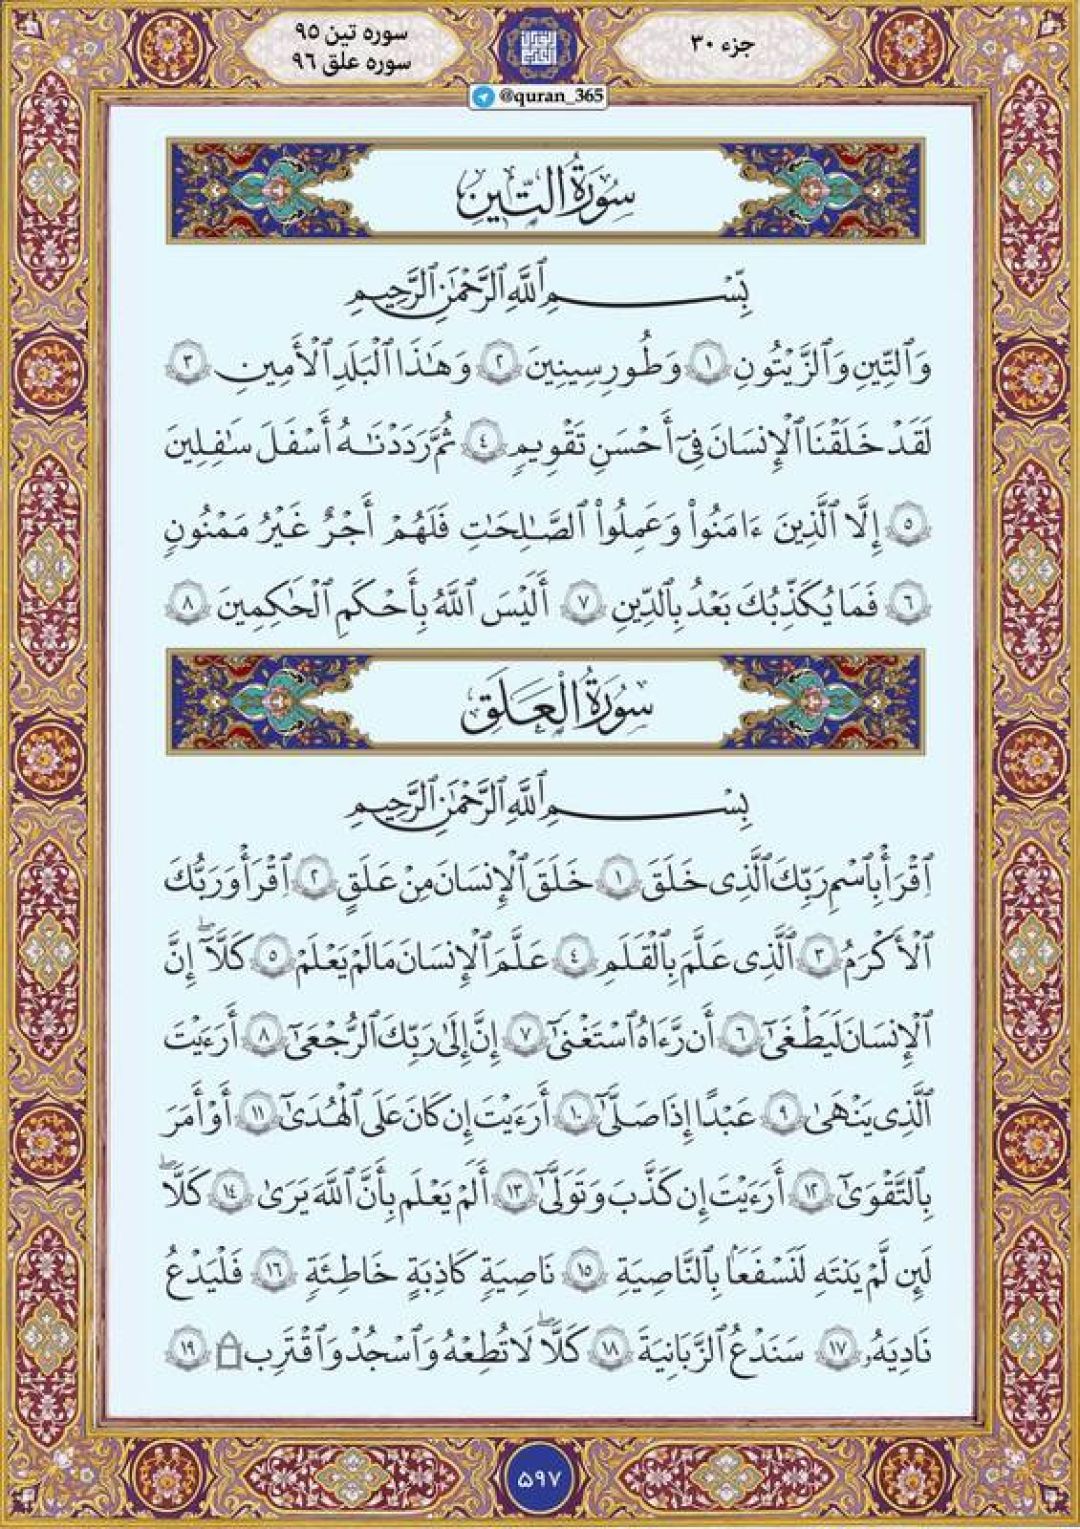 جزء ۳۰
سوره تین ۹۵
سوره علق ۹۶
@quran_365
سُورَةُ التِّينِ
بِّسْمِ ٱللَّهِ ٱلرَّحْمَٰنِ ٱلرَّحِيمِ
وَٱلتِّينِ وَٱلزَّيْتُونِ ١ وَطُورِ سِينِينَ ٢ وَهَٰذَا ٱلْبَلَدِ ٱلْأَمِينِ ٣
لَقَدْ خَلَقْنَا ٱلْإِنسَانَ فِىٓ أَحْسَنِ تَقْوِيمٍ ٤ ثُمَّ رَدَدْنَٰهُ أَسْفَلَ سَٰفِلِينَ
٥ إِلَّا ٱلَّذِينَ ءَامَنُوا۟ وَعَمِلُوا۟ ٱلصَّٰلِحَٰتِ فَلَهُمْ أَجْرٌ غَيْرُ مَمْنُونٍ
٦ فَمَا يُكَذِّبُكَ بَعْدُ بِٱلدِّينِ ٧ أَلَيْسَ ٱللَّهُ بِأَحْكَمِ ٱلْحَٰكِمِينَ ٨
سُورَةُ الْعَلَقِ
بِسْمِ ٱللَّهِ ٱلرَّحْمَٰنِ ٱلرَّحِيمِ
ٱقْرَأْ بِٱسْمِ رَبِّكَ ٱلَّذِى خَلَقَ ١ خَلَقَ ٱلْإِنسَانَ مِنْ عَلَقٍ ٢ ٱقْرَأْ وَرَبُّكَ
ٱلْأَكْرَمُ ٣ ٱلَّذِى عَلَّمَ بِٱلْقَلَمِ ٤ عَلَّمَ ٱلْإِنسَانَ مَا لَمْ يَعْلَمْ ٥ كَلَّآ ۖ إِنَّ
ٱلْإِنسَانَ لَيَطْغَىٰٓ ٦ أَن رَّءَاهُ ٱسْتَغْنَىٰٓ ٧ إِنَّ إِلَىٰ رَبِّكَ ٱلرُّجْعَىٰٓ ٨ أَرَءَيْتَ
ٱلَّذِى يَنْهَىٰ ٩ عَبْدًا إِذَا صَلَّىٰٓ ١٠ أَرَءَيْتَ إِن كَانَ عَلَى ٱلْهُدَىٰٓ ١١ أَوْ أَمَرَ
بِٱلتَّقْوَىٰٓ ١٢ أَرَءَيْتَ إِن كَذَّبَ وَتَوَلَّىٰٓ ١٣ أَلَمْ يَعْلَم بِأَنَّ ٱللَّهَ يَرَىٰ ١٤ كَلَّا ۖ
لَئِن لَّمْ يَنتَهِ لَنَسْفَعًۢا بِٱلنَّاصِيَةِ ١٥ نَاصِيَةٍ كَاذِبَةٍ خَاطِئَةٍ ١٦ فَلْيَدْعُ
نَادِيَهُۥ ١٧ سَنَدْعُ ٱلزَّبَانِيَةَ ١٨ كَلَّا ۖ لَا تُطِعْهُ وَٱسْجُدْ وَٱقْتَرِب ١٩
۵۹۷